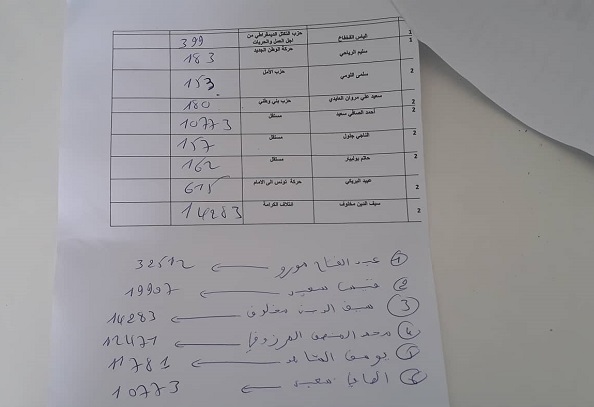 1 الياس الفخفاخ حزب التكتل الديمقراطي من أجل العمل والحريات 399
1 سليم الرياحي حركة الوطن الجديد 183
2 سلمى اللومي حزب الأمل 153
2 سعيد علي مروان العايدي حزب بني وطني 180
2 أحمد الصافي سعيد مستقل 10773
2 الناجي جلول مستقل 157
2 حاتم بولبيار مستقل 162
2 عبيد البريكي حركة تونس الى الامام 615
2 سيف الدين مخلوف ائتلاف الكرامة 14283
① عبد الفتاح مورو ← 32512
② قيس سعيد ← 19907
③ سيف الدين مخلوف ← 14283
④ محمد المنصف المرزوقي ← 12471
⑤ يوسف الشاهد ← 11781
⑥ الصافي سعيد ← 10773